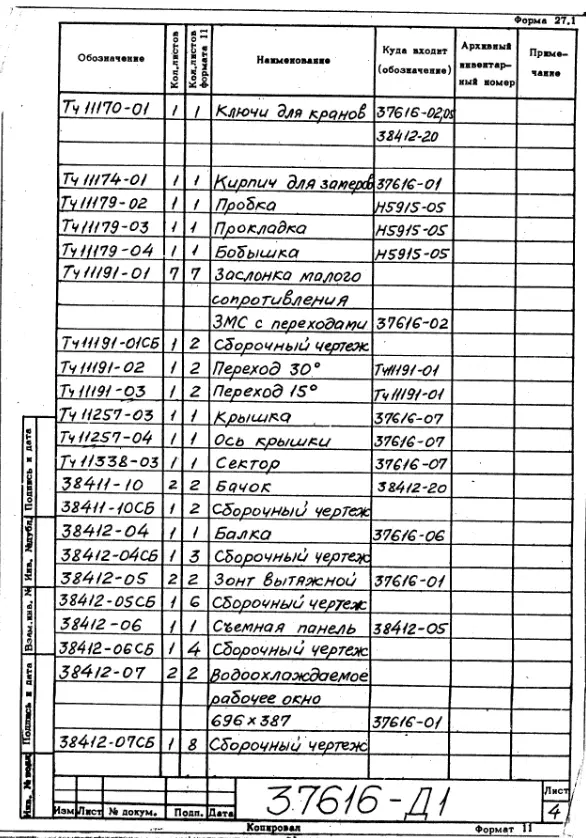 Форма 27.1
Обозначение Кол.листов Кол.листов формата 11 Наименование Куда входит (обозначение) Архивный инвентарный номер Примечание
Тч 11170-01 1 1 Ключи для кранов 37616-02,05
38412-20
Тч 11174-01 1 1 Кирпич для замеров 37616-01
Тч 11179-02 1 1 Пробка Н5915-05
Тч 11179-03 1 1 Прокладка Н5915-05
Тч 11179-04 1 1 Бобышка Н5915-05
Тч 11191-01 7 7 Заслонка малого
сопротивления
ЗМС с переходами 37616-02
Тч 11191-01СБ 1 2 Сборочный чертеж
Тч 11191-02 1 2 Переход 30° Тч11191-01
Тч 11191-03 1 2 Переход 15° Тч11191-01
Тч 11257-03 1 1 Крышка 37616-07
Тч 11257-04 1 1 Ось крышки 37616-07
Тч 11338-03 1 1 Сектор 37616-07
38411-10 2 2 Бачок 38412-20
38411-10СБ 1 2 Сборочный чертеж
38412-04 1 1 Балка 37616-06
38412-04СБ 1 3 Сборочный чертеж
38412-05 2 2 Зонт вытяжной 37616-01
38412-05СБ 1 6 Сборочный чертеж
38412-06 1 1 Съемная панель 38412-05
38412-06СБ 1 4 Сборочный чертеж
38412-07 2 2 Водоохлаждаемое
рабочее окно
696×387 37616-01
38412-07СБ 1 8 Сборочный чертеж
Подпись и дата
Инв. №дубл.
Взам.инв. №
Подпись и дата
Инв. №подл
Изм Лист № докум. Подп. Дата
37616-Д1
Лист
4
Копировал Формат 11